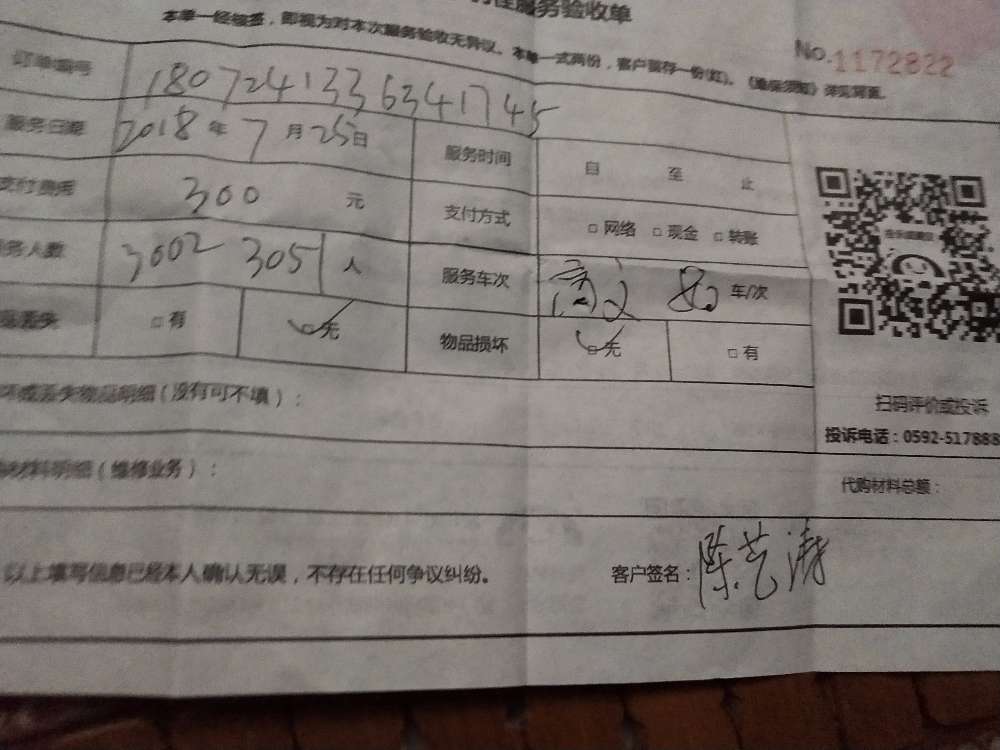 服务验收单
本单一经签, 即视为对本次服务验收无异议。本单一式两份, 客户留存一份(红)。《维保须知》详见背面。
No.1172822
订单编号 1807241336341745
服务日期 2018 年 7 月 25 日 服务时间 自 至 止
支付费用 300 元 支付方式 □ 网络 □ 现金 □ 转账
务人数 3002 3051 人 服务车次 车/次
丢失 □ 有 □ 无 物品损坏 □ 无 □ 有
扫码评价或投诉
投诉电话:0592-517888
坏或丢失物品明细(没有可不填):
材料明细(维修业务):
代购材料总额:
以上填写信息已经本人确认无误,不存在任何争议纠纷。
客户签名: 陈艺涛